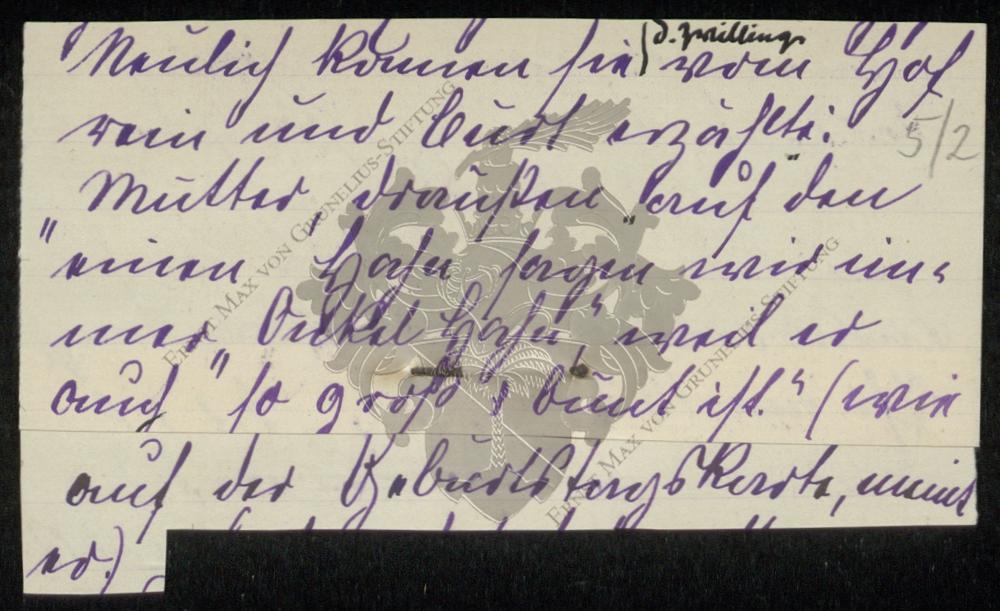 Neulich kamen sie (d. Zwillinge vom Hof
rein und Curt erzählte:
Mutter, draußen „auf den
"einen Hahn sagen wir im-
mer „Onkel Hahn" weil er
auch so groß & bunt ist." (wie
auf der Geburtstagskarte, meint
er.)
5/2
ERNST MAX VON GRUNELIUS-STIFTUNG
ERNST MAX VON GRUNELIUS-STIFTUNG